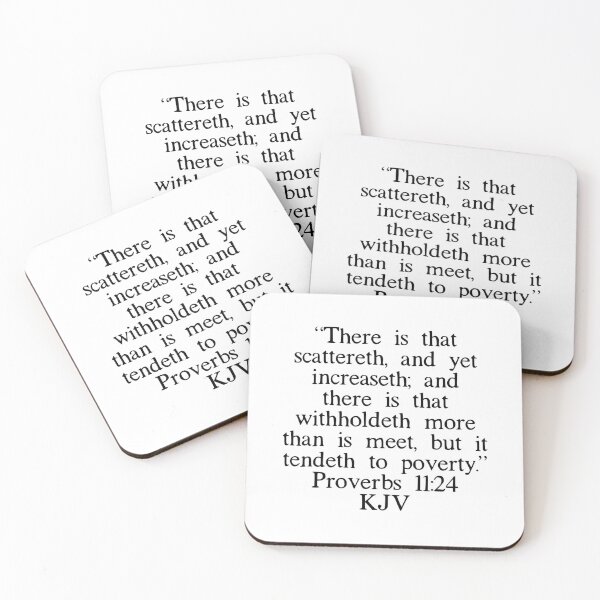 “There is that
scattereth, and yet
increaseth; and
there is that
more
but
“There is that
scattereth, and yet
increaseth; and
there is that
withholdeth more
than is meet, but it
tendeth to poverty.”
“There is that
scattereth, and yet
increaseth; and
there is that
withholdeth more
than is meet, but it
tendeth to
Proverbs
KJV
“There is that
scattereth, and yet
increaseth; and
there is that
withholdeth more
than is meet, but it
tendeth to poverty.”
Proverbs 11:24
KJV